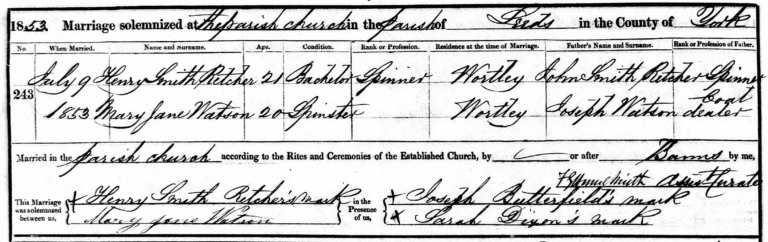 1853. Marriage solemnized at the parish church in the parish of Leeds in the County of York
No. When Married. Name and Surname. Age. Condition. Rank or Profession. Residence at the time of Marriage. Father's Name and Surname. Rank or Profession of Father.
243 July 9 Henry Smith Pitcher 21 Bachelor Spinner Wortley John Smith Pitcher Spinner
1853 Mary Jane Watson 20 Spinster Wortley Joseph Watson Coal dealer
Married in the parish church according to the Rites and Ceremonies of the Established Church, by or after Banns by me,
Assist Curate
This Marriage was solemnized between us, { + Henry Smith Pitcher's mark } in the Presence of us, { + Joseph Butterfield's mark
Mary Jane Watson + Sarah Dixon's mark